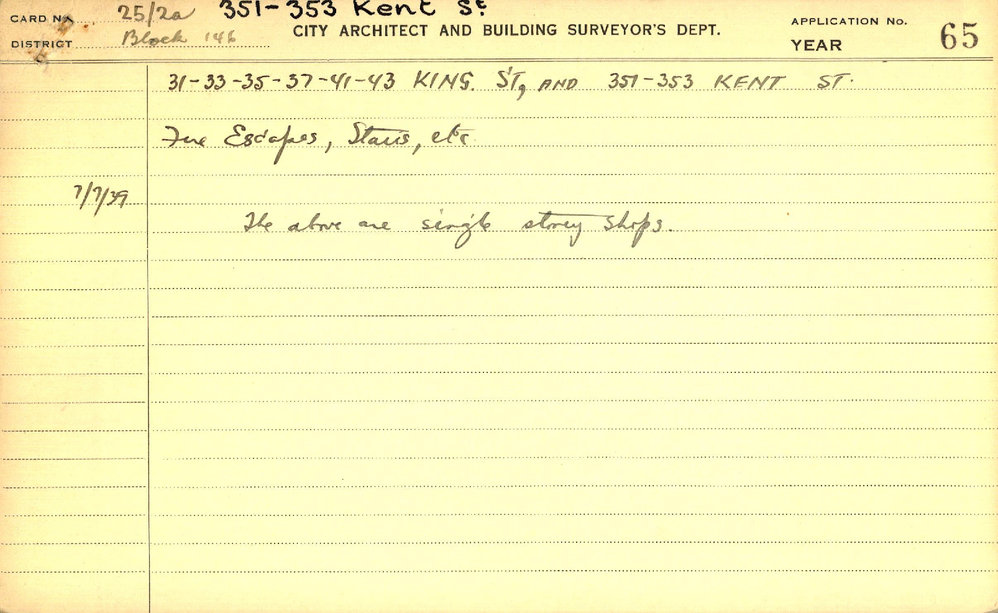 CARD No. 25/2a 351-353 Kent St
APPLICATION No. 65
DISTRICT Block 146 CITY ARCHITECT AND BUILDING SURVEYOR'S DEPT.
YEAR
31-33-35-37-41-43 KING. ST, AND 351-353 KENT ST.
Fire Escapes, Stairs, etc.
7/7/39
The above are single storey shops.